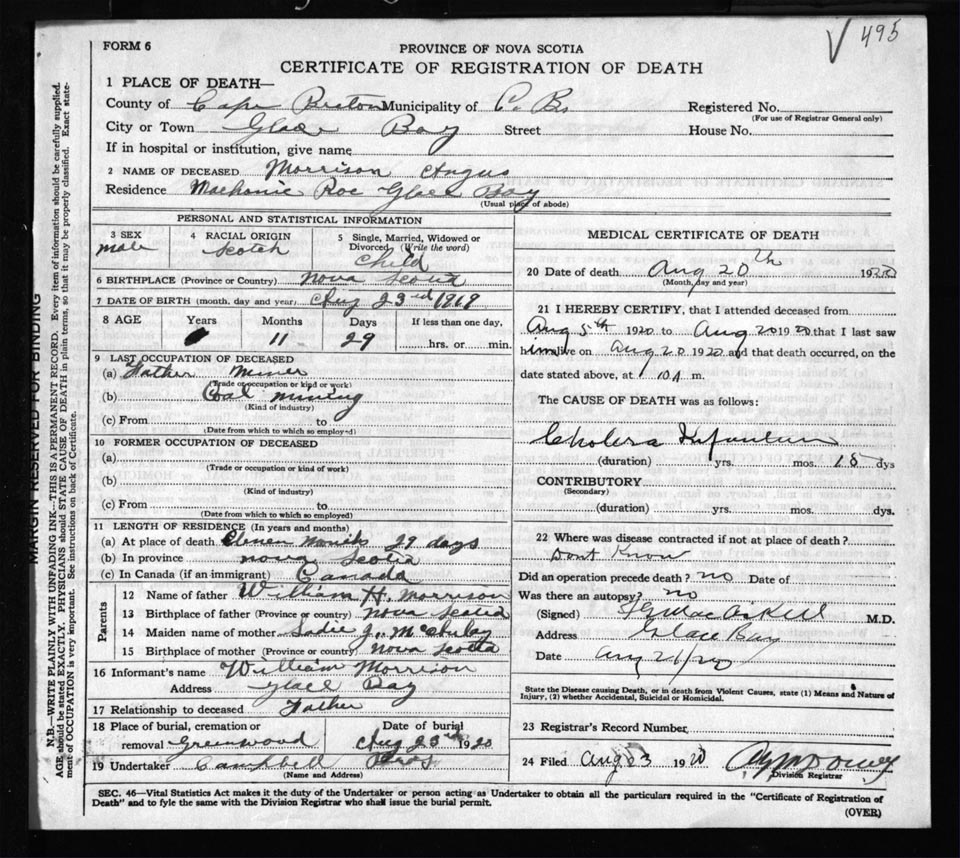 495
FORM 6
PROVINCE OF NOVA SCOTIA
CERTIFICATE OF REGISTRATION OF DEATH
1 PLACE OF DEATH—
County of Cape Breton Municipality of C. B. Registered No.
(For use of Registrar General only)
City or Town Glace Bay Street House No.
If in hospital or institution, give name
2 NAME OF DECEASED Morrison Angus
Residence Glace Bay
(Usual place of abode)
PERSONAL AND STATISTICAL INFORMATION
3 SEX male
4 RACIAL ORIGIN Scotch
5 Single, Married, Widowed or Divorced (Write the word) Child
6 BIRTHPLACE (Province or Country) Nova Scotia
7 DATE OF BIRTH (month, day and year) Aug 23rd 1919
8 AGE Years Months Days If less than one day,
11 29 hrs. or min.
9 LAST OCCUPATION OF DECEASED
(a) Father Miner
(Trade or occupation or kind of work)
(b) Coal mining
(Kind of industry)
(c) From to
(Date from which to which so employed)
10 FORMER OCCUPATION OF DECEASED
(a)
(Trade or occupation or kind of work)
(b)
(Kind of industry)
(c) From to
(Date from which to which so employed)
11 LENGTH OF RESIDENCE (In years and months)
(a) At place of death Eleven Months 29 days
(b) In province Nova Scotia
(c) In Canada (if an immigrant) Canada
Parents
12 Name of father William H. Morrison
13 Birthplace of father (Province or country) Nova Scotia
14 Maiden name of mother Sadie J.
15 Birthplace of mother (Province or country) Nova Scotia
16 Informant's name William Morrison
Address Glace Bay
17 Relationship to deceased Father
18 Place of burial, cremation or removal Greenwood
Date of burial Aug 23rd 1920
19 Undertaker Campbell Bros
(Name and Address)
MEDICAL CERTIFICATE OF DEATH
20 Date of death Aug 20th 19
(Month, day and year)
21 I HEREBY CERTIFY, that I attended deceased from
Aug 5th 1920 to Aug 20 1920 that I last saw
him alive on Aug 20 1920 and that death occurred, on the
date stated above, at 10 A m.
The CAUSE OF DEATH was as follows:
Cholera Infantum
(duration) yrs. mos. 15 dys
CONTRIBUTORY
(Secondary)
(duration) yrs. mos. dys.
22 Where was disease contracted if not at place of death?
Dont Know
Did an operation precede death? no Date of
Was there an autopsy? no
(Signed) M.D.
Address Glace Bay
Date Aug 21/20
State the Disease causing Death, or in death from Violent Causes, state (1) Means and Nature of
Injury, (2) whether Accidental, Suicidal or Homicidal.
23 Registrar's Record Number
24 Filed Aug 23 1920
Division Registrar
SEC. 46—Vital Statistics Act makes it the duty of the Undertaker or person acting as Undertaker to obtain all the particulars required in the "Certificate of Registration of
Death" and to fyle the same with the Division Registrar who shall issue the burial permit.
(OVER)
MARGIN RESERVED FOR BINDING
N.B.—WRITE PLAINLY WITH UNFADING INK—THIS IS A PERMANENT RECORD. Every item of information should be carefully supplied.
AGE should be stated EXACTLY. PHYSICIANS should STATE CAUSE OF DEATH in plain terms, so that it may be properly classified. Exact state-
ment of OCCUPATION is very important. See instructions on back of Certificate.